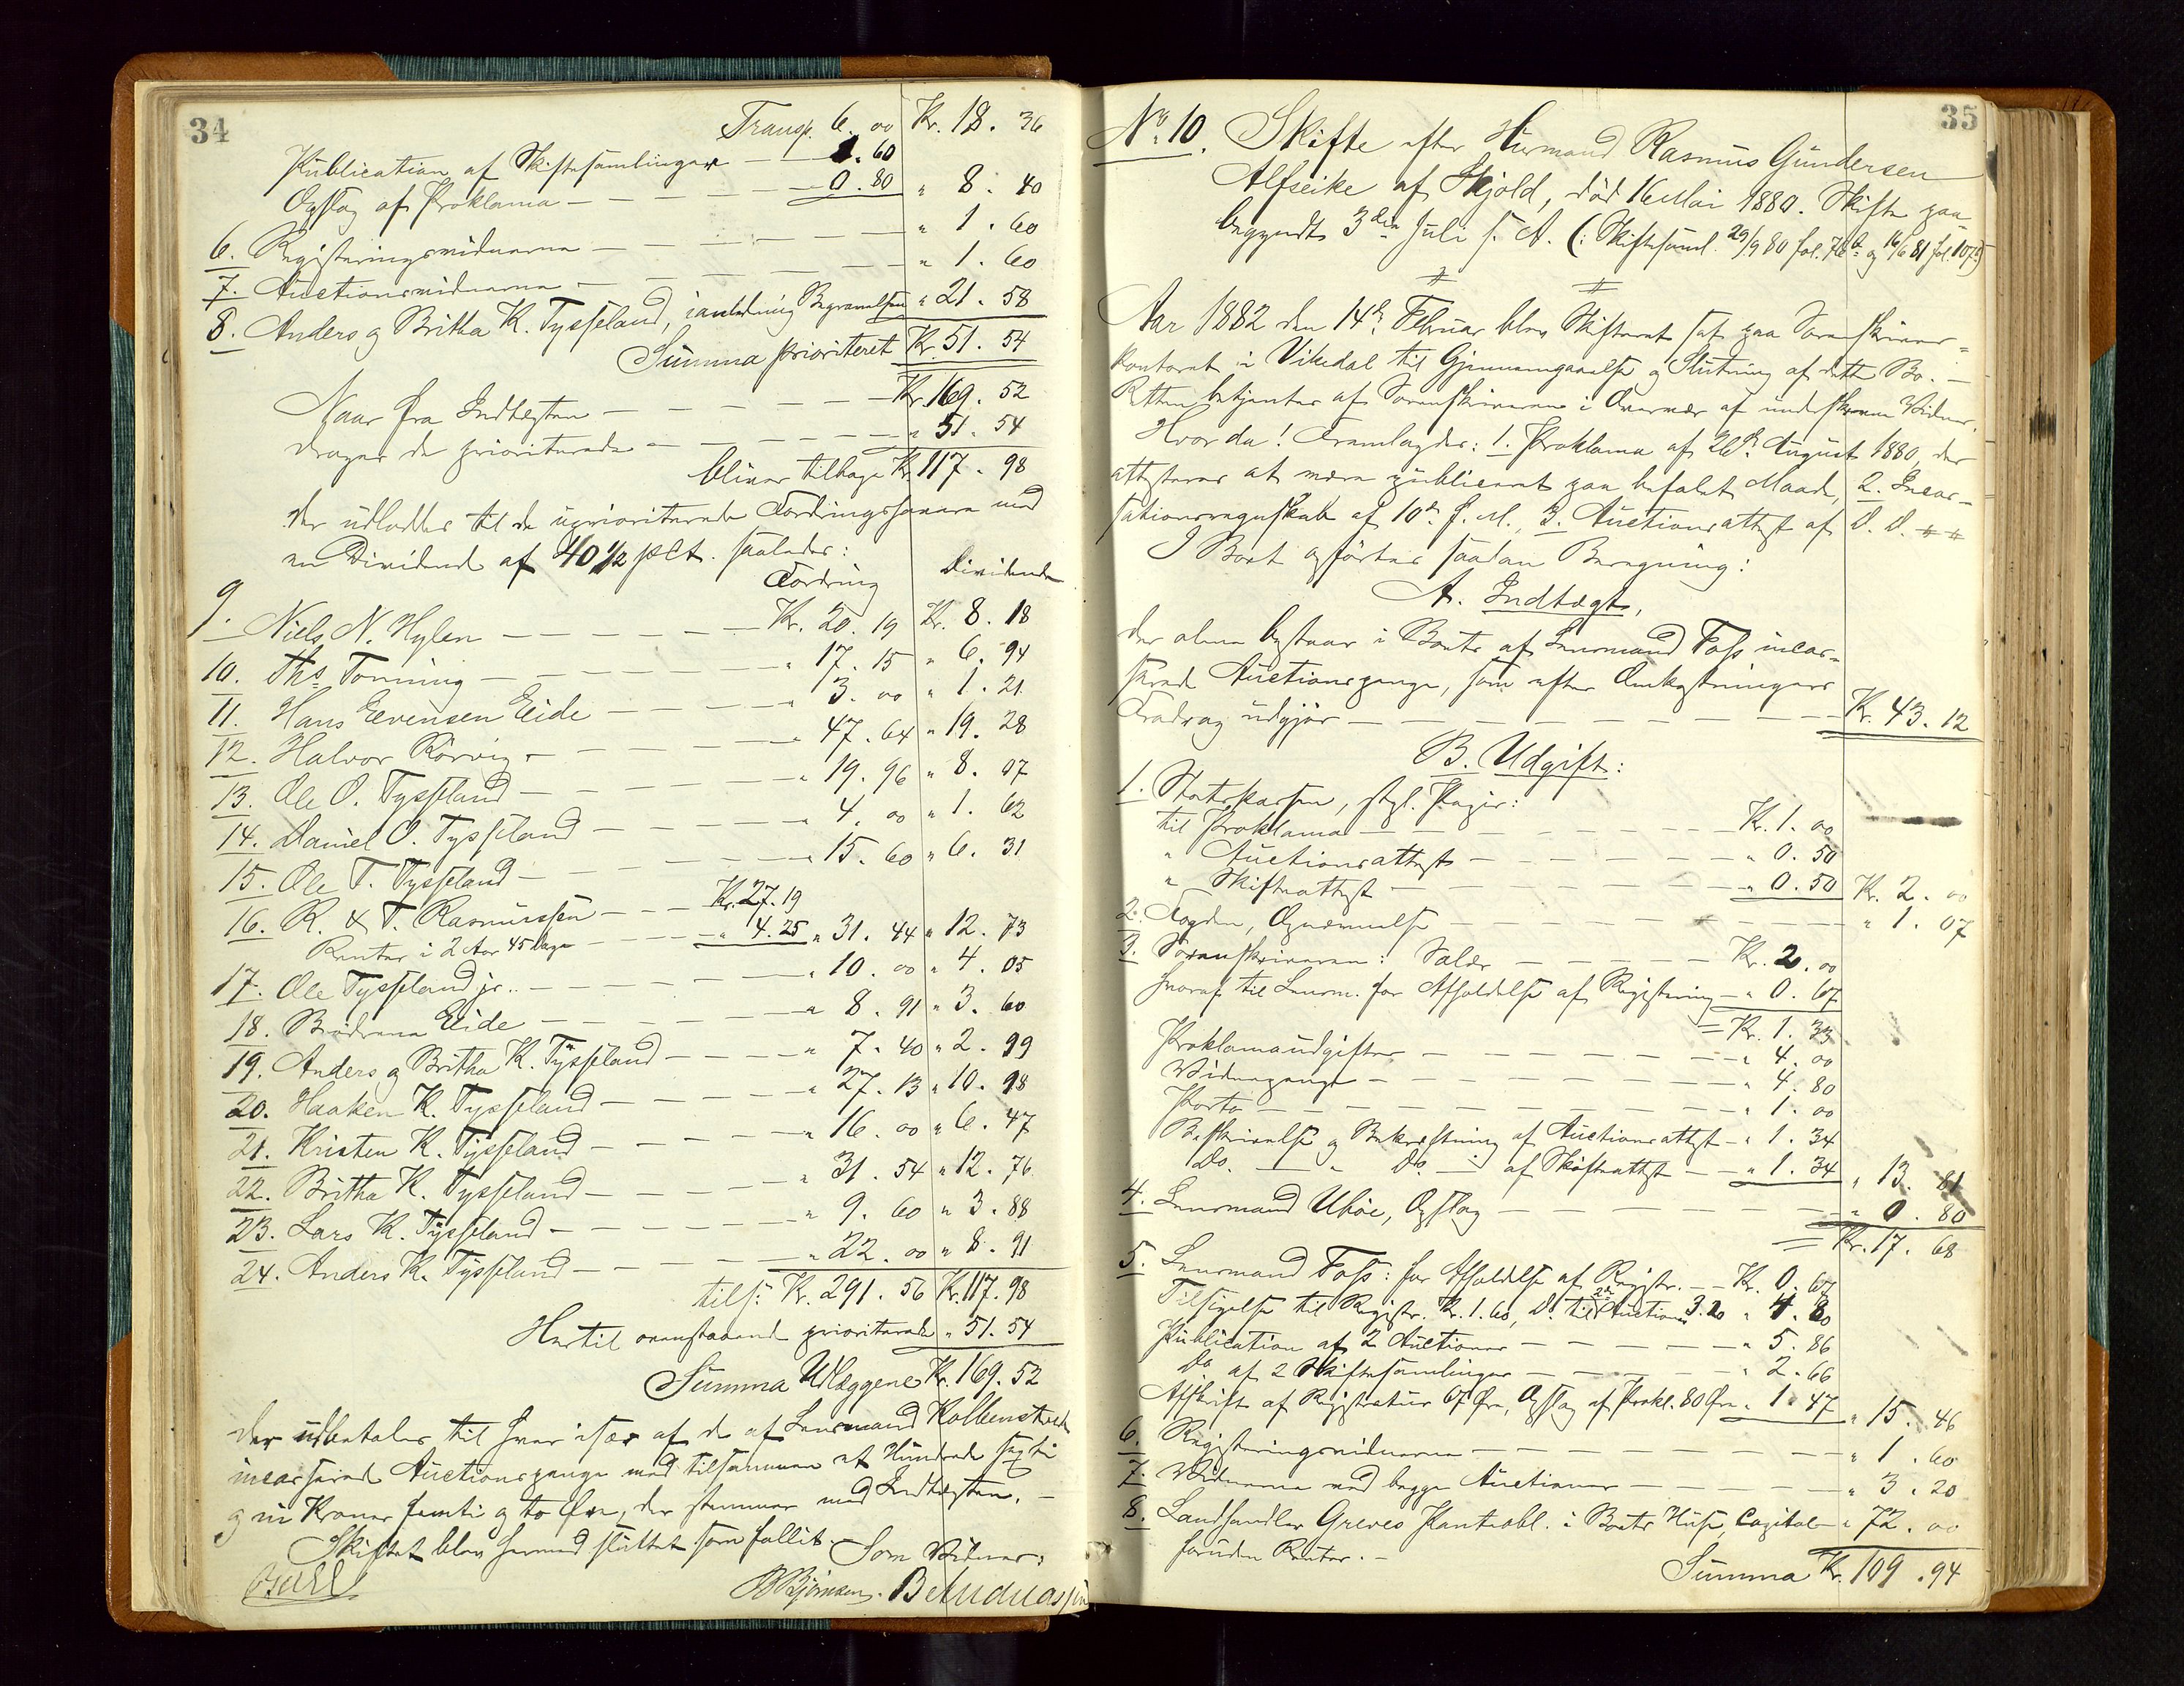 34
Transp. 6. 00 Kr. 18. 36
Publication af Skiftesamlinger — 1. 60
Opslag af Proklama — — — — 0. 80 " 8. 40
6. Registeringsvidnerne — — — — " 1. 60
7. Auctionsvidnerne — — — — " 1. 60
8. Anders og Britha K. Tysseland, i anledning Begravelsen " 21. 58
Summa prioriteret Kr. 51. 54
Naar fra Indtægten — — — — Kr. 169. 52
drages de prioriterede — — — — " 51. 54
bliver tilbage Kr. 117. 98
der udlodes til de uprioriterede Fordringshavere med
en Dividende af 40 1/2 pCt. saaledes:
Fordring Dividende
9. Niels N. Hylen — — — Kr. 20. 19 Kr. 8. 18
10. Ths. Torning — — — " 17. 15 " 6. 94
11. Hans Evensen Eide — — — " 3. 00 " 1. 21
12. Halvor Rørvig — — — " 47. 64 " 19. 28
13. Ole O. Tysseland — — — " 19. 96 " 8. 07
14. Daniel O. Tysseland — — — " 4. 00 " 1. 62
15. Ole T. Tysseland — — — " 15. 60 " 6. 31
16. R. & T. Rasmussen — — Kr. 27. 19
Renter i 2 Aar 45 Dage — — " 4. 25 " 31. 44 " 12. 73
17. Ole Tysseland jr. — — — " 10. 00 " 4. 05
18. Brødrene Eide — — — " 8. 91 " 3. 60
19. Anders og Britha K. Tysseland — — — " 7. 40 " 2. 99
20. Haaken K. Tysseland — — — " 27. 13 " 10. 98
21. Kristen K. Tysseland — — — " 16. 00 " 6. 47
22. Britha K. Tysseland — — — " 31. 54 " 12. 76
23. Lars K. Tysseland — — — " 9. 60 " 3. 88
24. Anders K. Tysseland — — — " 22. 00 " 8. 91
tils: Kr. 291. 56 Kr. 117. 98
Hertil ovenstaaende prioriterede " 51. 54
Summa Udlæggene Kr. 169. 52
der udbetales til hver især af de af Lensmand Kolbenstvedt
incasserede Auctionspenge med tilsammen et Hundrede sexti
og ni Kroner femti og to Øre, der stemmer med Indtægten. —
Skiftet blev hermed sluttet som fallit.
Som Vidner:
B Bjørnsen. B Andreassen
35
No. 10. Skifte efter Huusmand Rasmus Gundersen
Alfseike af Skjold, død 16 Mai 1880. Skifte paa
begyndt 3die Juli s. A. (: Skiftesaml. 29/9 80 fol. 76b og 16/6 81 fol. 107b)
Aar 1882 den 14de Februar blev Skifteret sat paa Sorenskriver=
kontoret i Vikedal til Gjennemgaaelse og Slutning af dette Bo. —
Retten betjentes af Sorenskriveren i Overvær af underskrevne Vidner.
Hvor da! Fremlagdes: 1. Proklama af 20de August 1880, der
attesteres at være publiceret paa befalet Maade, 2. Incas-
sationsregnskab af 10de f. M., 3. Auctionsattest af D. D.
I Boet opførtes saadan Beregning:
A. Indtægt,
der alene bestaar i Boets af Lensmand Foss incas-
serede Auctionspenge, som efter Omkostningers
Fradrag udgjør — — — — — — Kr. 43. 12
B. Udgift:
1. Statskassen, stpl. Papir:
til Proklama — — — — — Kr. 1. 00
" Auctionsattest — — — — " 0. 50
" Skifteattest — — — — " 0. 50 Kr. 2. 00
2. Fogden, Opnævnelse — — — — " 1. 07
3. Sorenskriveren: Salær — — — Kr. 2. 00
hvoraf til Lensm. for Afholdelse af Registering — " 0. 67
= Kr. 1. 33
Proklamaudgifter — — — — " 4. 00
Vidnepenge — — — — " 4. 80
Porto — — — — — " 1. 00
Beskrivelse og Bekræftning af Auctionsattest — " 1. 34
Do. — " Do. — af Skifteattest — — " 1. 34 " 13. 81
4. Lensmand Ubøe, Opslag — — — — " 0. 80
= Kr. 17. 68
5. Lensmand Foss: for Afholdelse af Registr. — — Kr. 0. 67
Tilsigelse til Registr. Kr. 1. 60, Do. til 2de Auctioner 3. 20 " 4. 80
Publication af 2 Auctioner — — — — " 5. 86
Do. af 2 Skiftesamlinger — — — — " 2. 66
Afskrift af Registratur 67 Øre, Opslag af Prokl. 80 Øre " 1. 47 " 15. 46
6. Registeringsvidnerne — — — — " 1. 60
7. Vidnerne ved begge Auctioner — — — — " 3. 20
8. Landhandler Greves Panteobl. i Boets Huse, Capital — " 72. 00
foruden Renter. —
Summa Kr. 109. 94